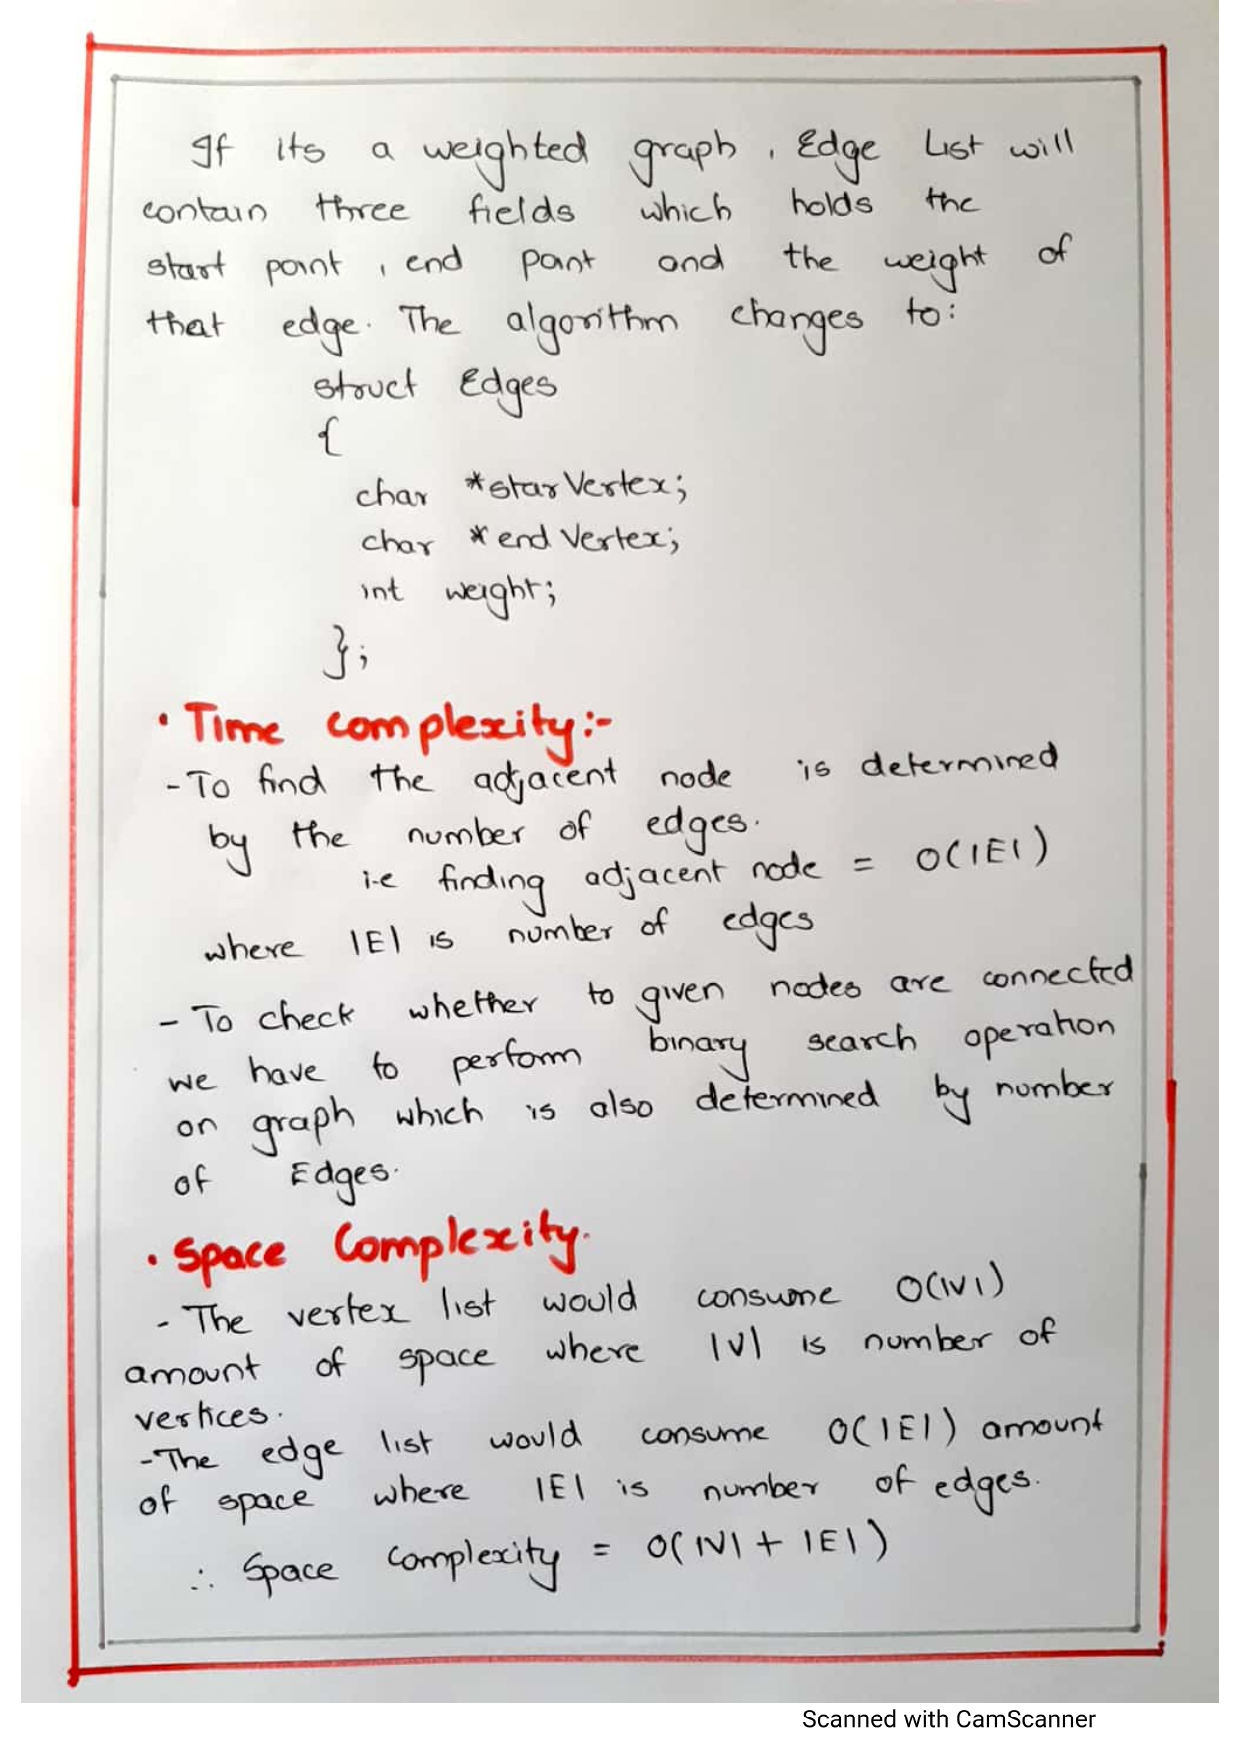 If its a weighted graph, Edge List will
contain three fields which holds the
start point, end point and the weight of
that edge. The algorithm changes to:
struct Edges
{
char *starVertex;
char *endVertex;
int weight;
};
• Time complexity:-
- To find the adjacent node is determined
by the number of edges.
i.e finding adjacent node = O(|E|)
where |E| is number of edges
- To check whether to given nodes are connected
we have to perform binary search operation
on graph which is also determined by number
of Edges.
• Space Complexity.
- The vertex list would consume O(|V|)
amount of space where |V| is number of
vertices.
- The edge list would consume O(|E|) amount
of space where |E| is number of edges.
∴ Space Complexity = O(|V| + |E|)
Scanned with CamScanner